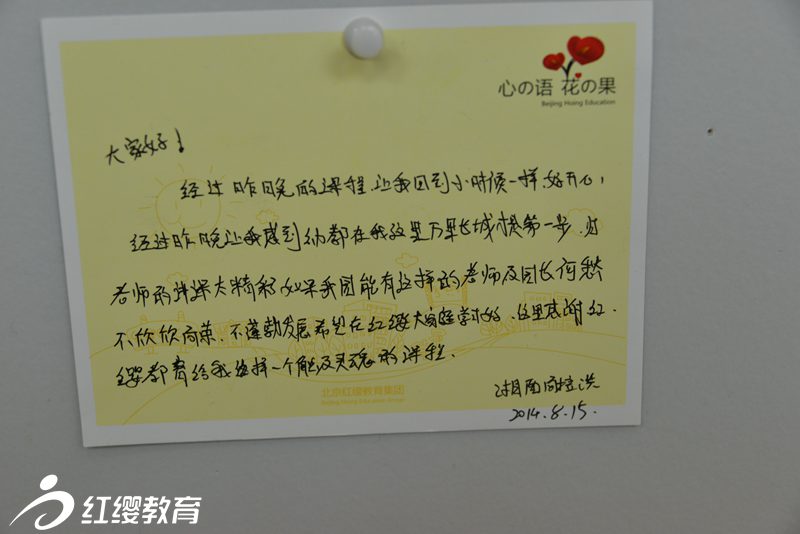 心の语 花の果
Beijing Hoing Education
大家好！
经过昨日晚的课程，让我回到小时候一样，好开心，
经过昨晚让我感到 都在我这里万里长城 第一步，
老师的讲课太精彩 如果我园能有这样的老师及园长何愁
不欣欣向荣，不蓬勃发展希望在红缨大家庭 好，这里感谢红
缨教育给我 一个触及灵魂的课程。
湖南
2014.8.15.
北京红缨教育集团
Beijing Hoing Education Group
红缨教育